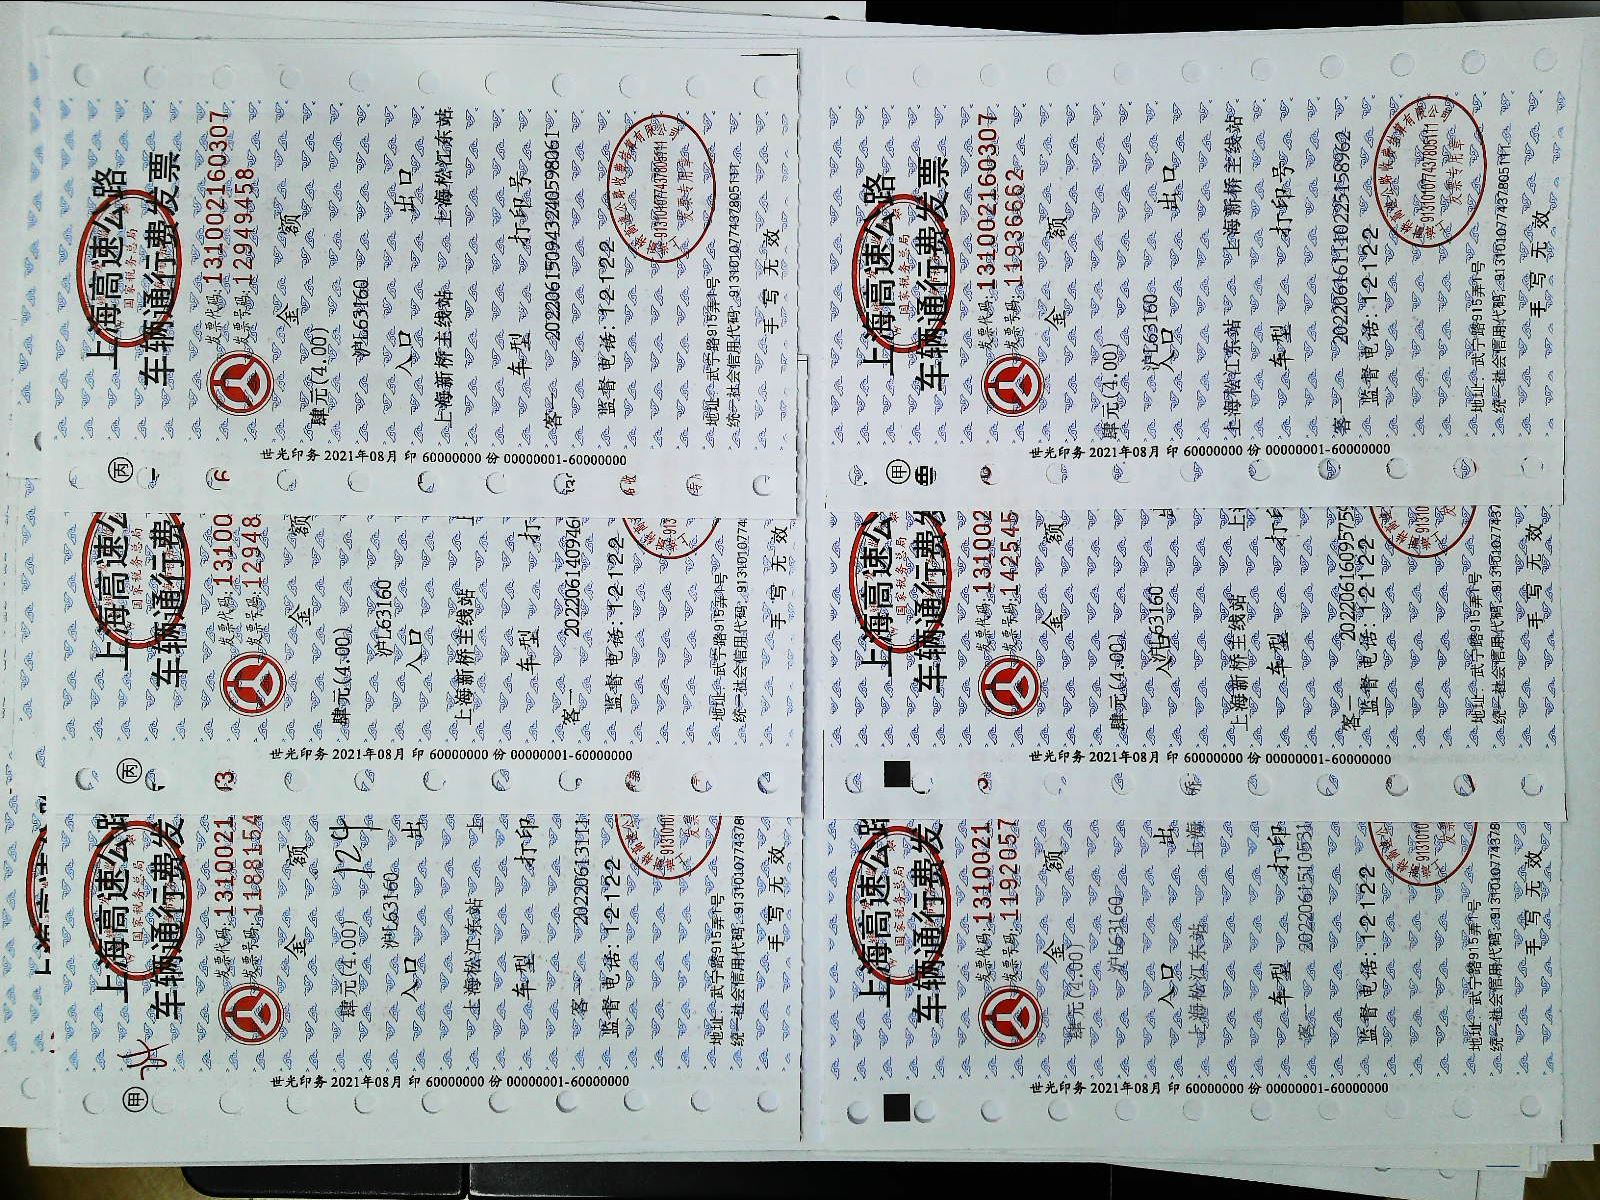 上海高速公路
国家税务总局
车辆通行费发票
发票代码:131002160307
发票号码:12949458
金 额
肆元(4.00)
沪L63160
入口 出口
上海新桥主线站 上海松江东站
车型 打印号
客一 2022061509432405980611
监督电话:12122
地址:武宁路915弄1号
统一社会信用代码:91310107743780511T
手写无效
世光印务 2021年08月 印 60000000 份 00000001-60000000
丙
上海高速公
国家税务总局
车辆通行费
发票代码:13100
发票号码:12948
金 额
肆元(4.00)
沪L63160
入口
上海新桥主线站 上
车型 打
客一 202206140946
监督电话:12122
地址:武宁路915弄1号
统一社会信用代码:9131010774
手写无效
世光印务 2021年08月 印 60000000 份 00000001-60000000
丙
上海高速公路
国家税务总局
车辆通行费发
发票代码:1310021
发票号码:1188154
金 额
124
肆元(4.00)
沪L63160
入口 出
上海松江东站 上
车型 打印
客一 2022061311
监督电话:12122
地址:武宁路915弄1号
统一社会信用代码:9131010774378
手写无效
世光印务 2021年08月 印 60000000 份 00000001-60000000
甲
上海高速公路
国家税务总局
车辆通行费发票
发票代码:131002160307
发票号码:11936662
金 额
肆元(4.00)
沪L63160
入口 出口
上海松江东站 上海新桥主线站
车型 打印号
客一 202206161110225158962
监督电话:12122
地址:武宁路915弄1号
统一社会信用代码:91310107743780511T
手写无效
世光印务 2021年08月 印 60000000 份 00000001-60000000
甲
上海高速公路
国家税务总局
车辆通行费发
发票代码:131002
发票号码:142545
金 额
肆元(4.00)
沪L63160
入口
上海新桥主线站 上
车型 打印
客一 20220616095759
监督电话:12122
地址:武宁路915弄1号
统一社会信用代码:913101077437
手写无效
世光印务 2021年08月 印 60000000 份 00000001-60000000
上海高速公路
国家税务总局
车辆通行费发
发票代码:1310021
发票号码:1192057
金 额
肆元(4.00)
沪L63160
入口 出
上海松江东站 上海
车型 打印
客一 20220615110531
监督电话:12122
地址:武宁路915弄1号
统一社会信用代码:9131010774378
手写无效
世光印务 2021年08月 印 60000000 份 00000001-60000000